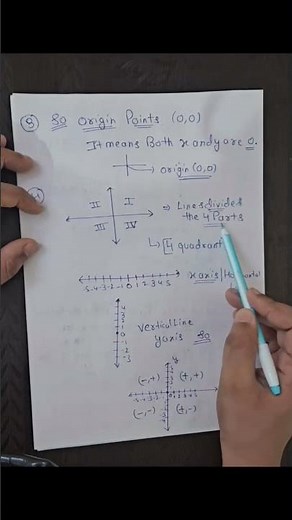 ⑧ So origin Points (0,0)
It means Both x and y are 0.
→ origin (0,0)
II I
III IV
⇒ Lines divided
the 4 Parts
↳ 4 quadrant
-5 -4 -3 -2 -1 0 1 2 3 4 5
x axis / Horizontal
4
3
2
1
0
-1
-2
-3
vertical line
y axis So
y
(-,+) (+,+)
(-,-) (+,-)